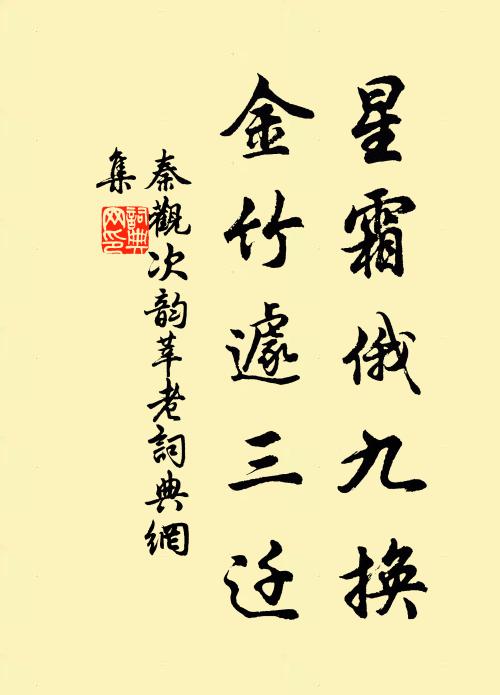 星霜俄九換
金竹遽三迁
秦觀次韵莘老詞典網
集
詞典网印